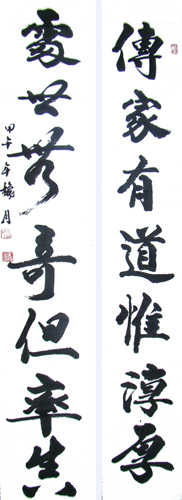 傳家有道惟淳厚
處世無奇但率真
甲午年穐月